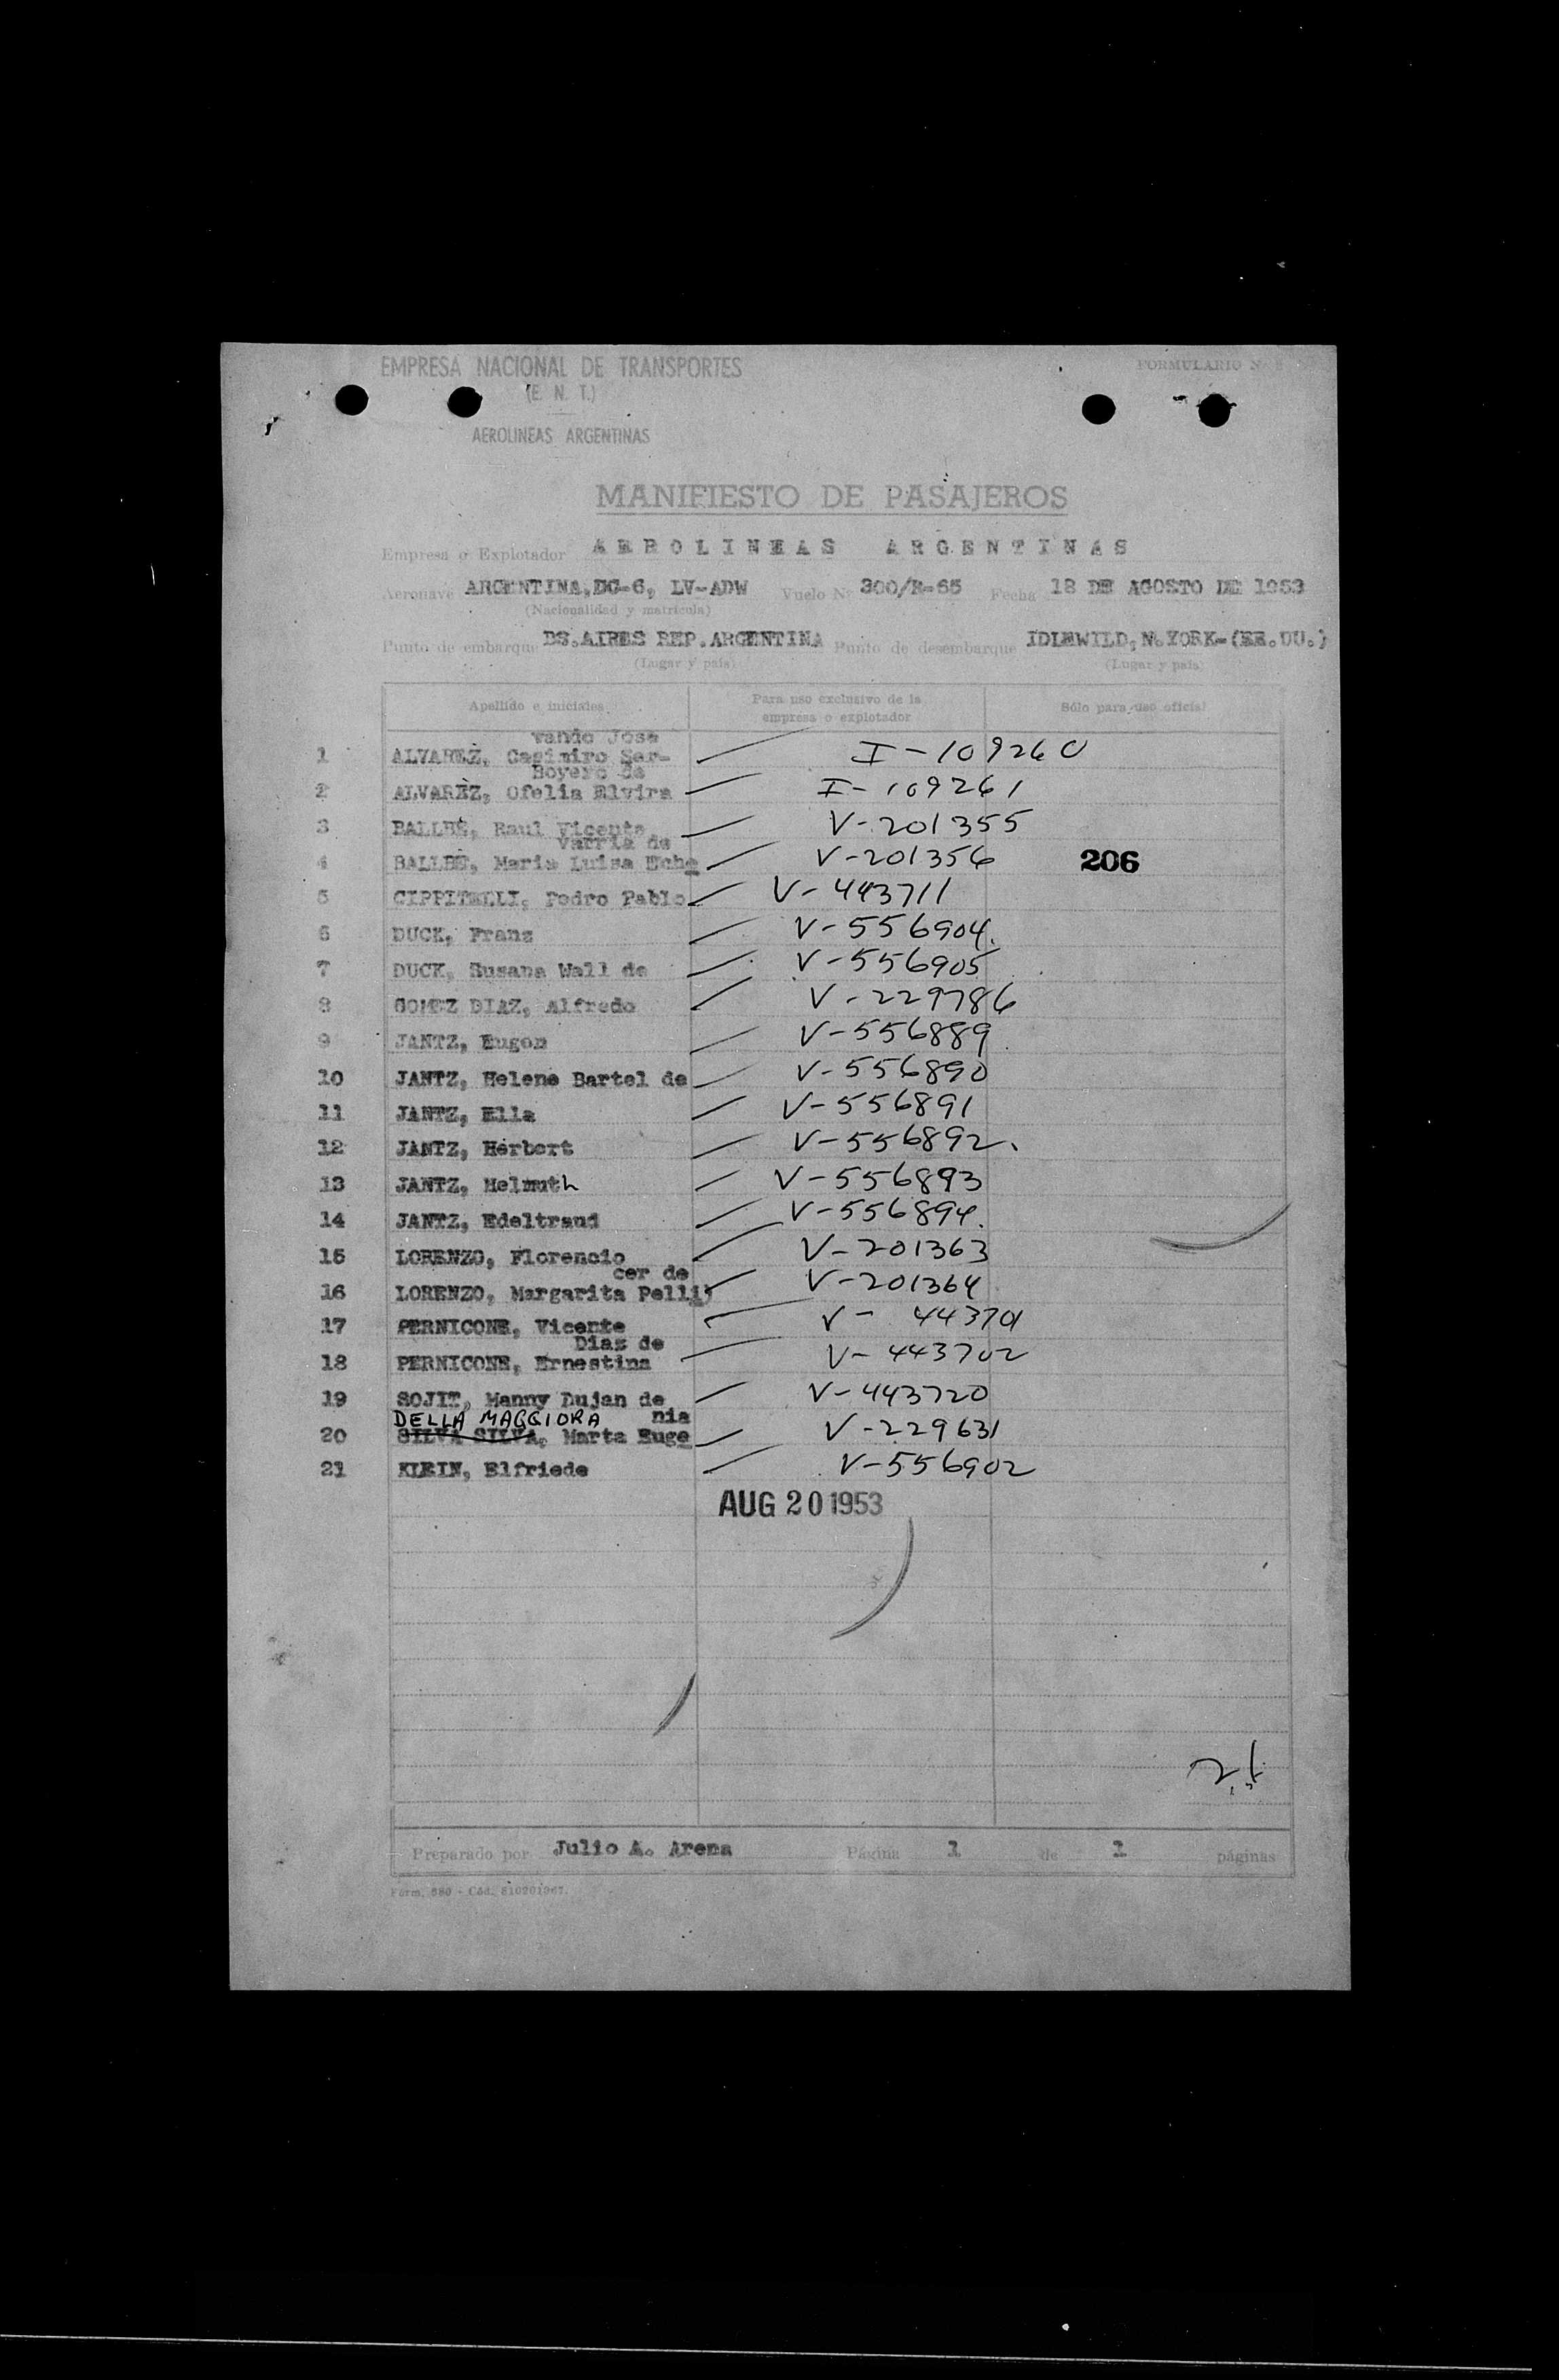 EMPRESA NACIONAL DE TRANSPORTES
FORMULARIO N
(E. N. T.)
AEROLINEAS ARGENTINAS
MANIFIESTO DE PASAJEROS
Empresa o Explotador AEROLINEAS ARGENTINAS
Aeronave ARGENTINA,DC-6, LV-ADW Vuelo Nº 300/R-65 Fecha 18 DE AGOSTO DE 1953
(Nacionalidad y matrícula)
Punto de embarque BS.AIRES REP.ARGENTINA Punto de desembarque IDLEWILD,N.YORK-(EE.UU.)
(Lugar y país) (Lugar y país)
Apellido e iniciales Para uso exclusivo de la empresa o explotador Sólo para uso oficial
vando José
1 ALVAREZ, Casimiro Ser- I-109260
Boyero de
2 ALVAREZ, Ofelia Elvira I-109261
3 BALLBE, Raul Vicente V-201355
varria de
4 BALLBE, Maria Luisa Eche V-201356 206
5 CIPPITELLI, Pedro Pablo V-443711
6 DUCK, Franz V-556904.
7 DUCK, Susana Wall de V-556905
8 GOMEZ DIAZ, Alfredo V-229786
9 JANTZ, Eugen V-556889
10 JANTZ, Helene Bartel de V-556890
11 JANTZ, Ella V-556891
12 JANTZ, Herbert V-556892.
13 JANTZ, Helmuth V-556893
14 JANTZ, Edeltraud V-556894.
15 LORENZO, Florencio V-201363
cer de
16 LORENZO, Margarita Pelli V-201364
17 PERNICONE, Vicente V-443701
Diaz de
18 PERNICONE, Ernestina V-443702
19 SOJIT, Manny Dujan de V-443720
DELLA MAGGIORA nia
20 SILVA SILVA, Marta Euge V-229631
21 KLEIN, Elfriede V-556902
AUG 20 1953
21
Preparado por Julio A. Arena Página 1 de 1 páginas
Form. 880 - Cód. 810201967.